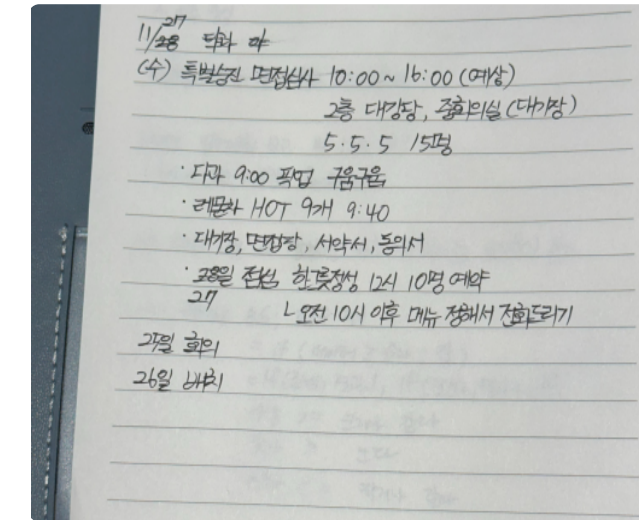 11/27
(수) 특별승진 면접심사 10:00 ~ 16:00 (예상)
2층 대강당, 중회의실 (대기장)
5. 5. 5 15명
· 다과 9:00 픽업 구움구움
· 레몬차 HOT 9개 9:40
· 대기장, 면접장, 서약서, 동의서
· 27일 점심 한그릇정성 12시 10명 예약
ㄴ 오전 10시 이후 메뉴 정해서 전화드리기
25일 회의
26일 배치